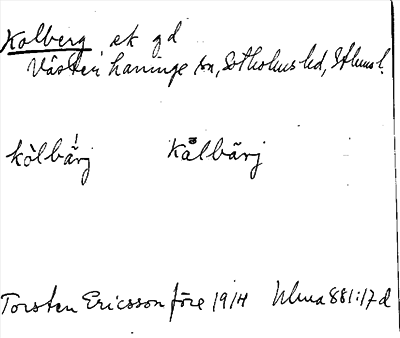 Kolberg, ek gd
Västerhaninge sn, Sotholms hd, Sthms l.
kòlbä́rj Kålbärj
Torsten Ericsson före 1914 Ulma 881:17 d